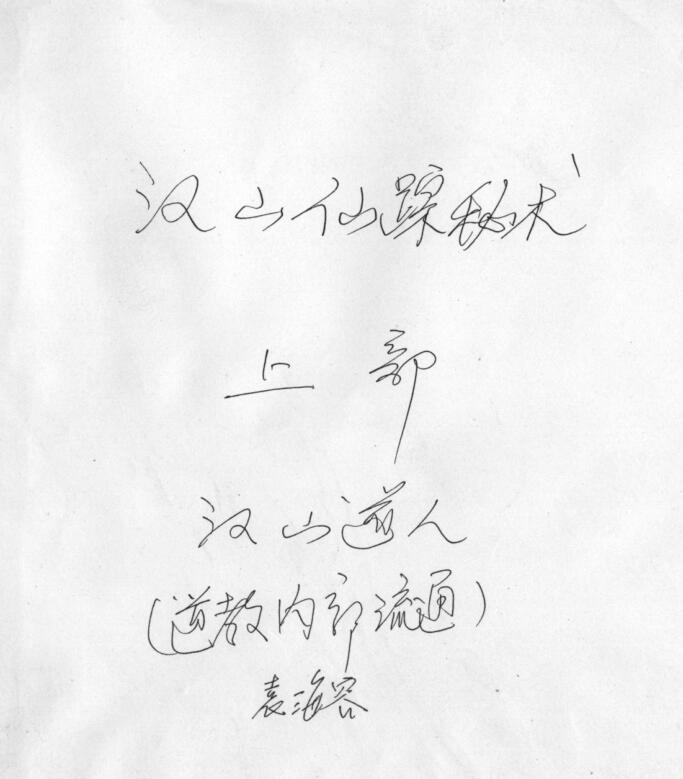 汉山仙踪秘术
上部
汉山道人
(道教内部流通)
袁海容